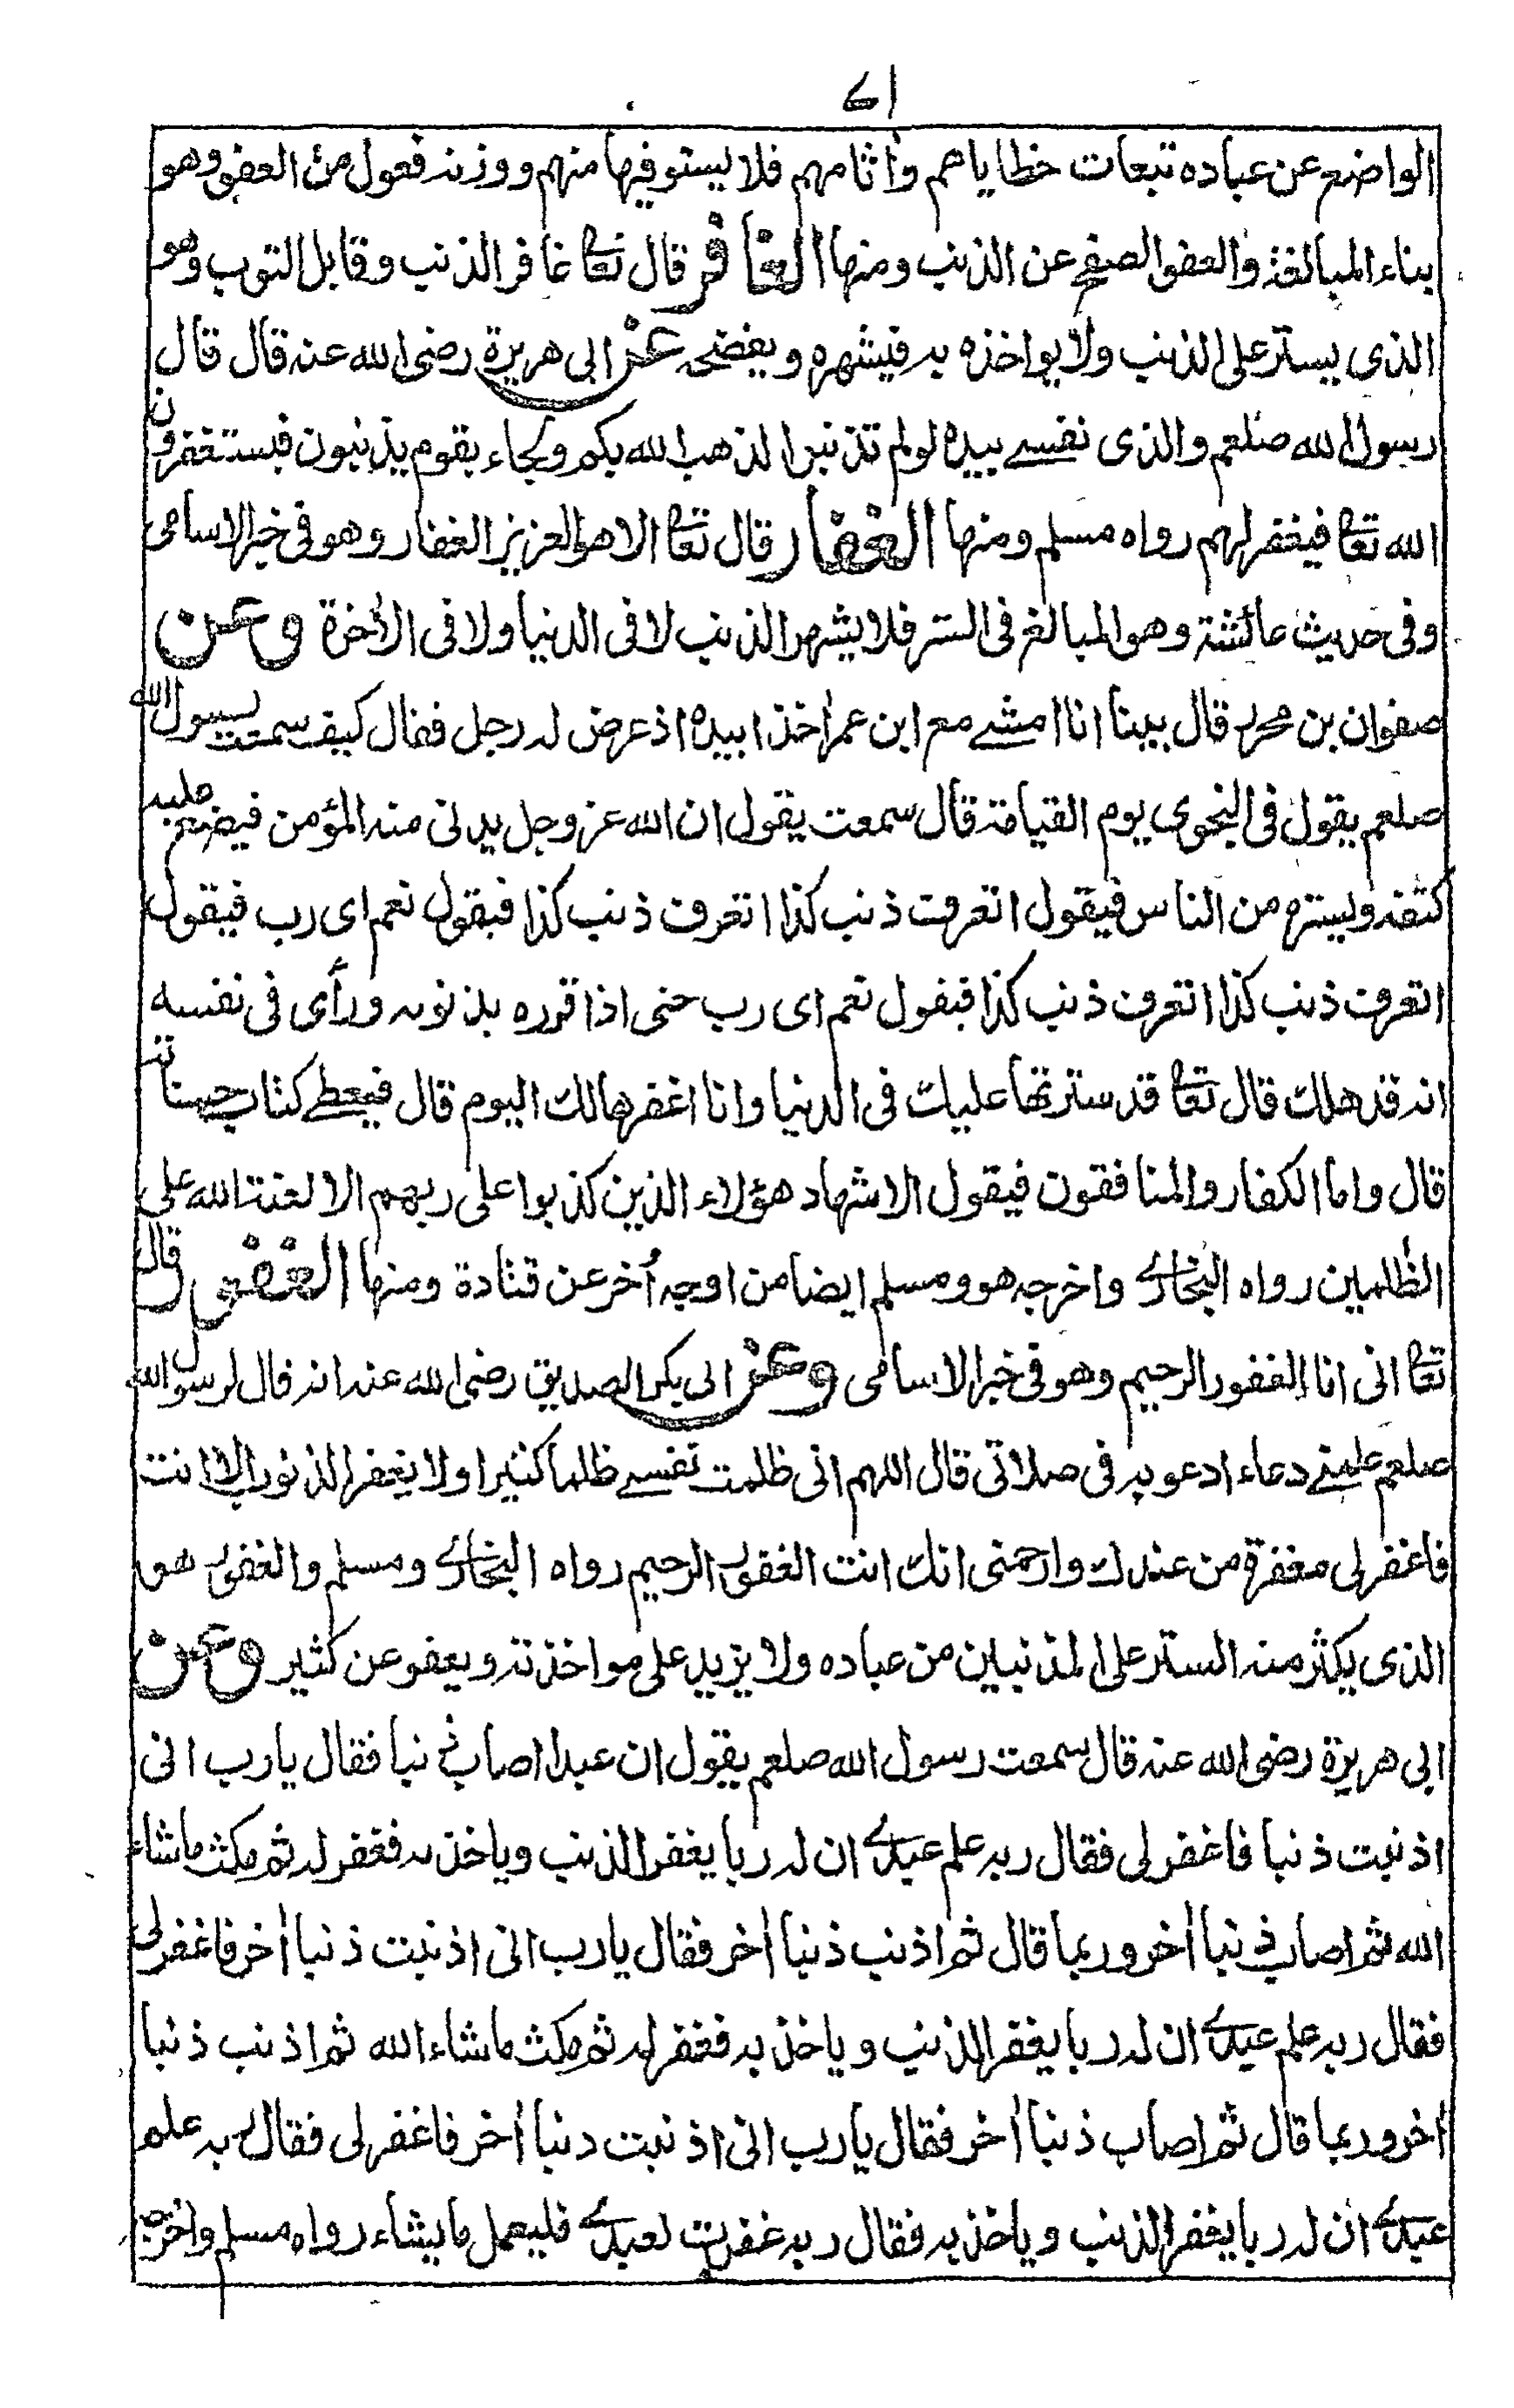 ٧١
الواضع عن عباده تبعات خطاياهم وأثامهم فلا يستوفيها منهم ووزنه فعول من العفو وهو
بناء المبالغة والعفو الصفح عن الذنب ومنها الغافر قال تعا غافر الذنب وقابل التوب وهو
الذى يستر على الذنب ولا يواخذه به فيشهره ويفضحه عن ابى هريرة رضى الله عنه قال قال
رسول الله صلعم والذى نفسے بيده لو لم تذنبوا لذهب الله بكم ولجاء بقوم يذنبون فيستغفرون
الله تعا فيغفر لهم رواه مسلم ومنها الغفار قال تعا الا هو العزيز الغفار وهو فى خبر الاسامى
وفى حديث عائشة وهو المبالغ فى الستر فلا يشهر الذنب لا فى الدنيا ولا فى الأخرة وعن
صفوان بن محرز قال بينا انا امشے مع ابن عمر أخذا بيده اذ عرض له رجل فقال كيف سمعت رسول الله
صلعم يقول فى النجوى يوم القيامة قال سمعت يقول ان الله عز وجل يدنى منه المؤمن فيضع عليه
كتفه ويستره من الناس فيقول اتعرف ذنب كذا اتعرف ذنب كذا فيقول نعم اى رب فيقول
اتعرف ذنب كذا اتعرف ذنب كذا فيقول نعم اى رب حتى اذا قرره بذنوبه ورأى فى نفسه
انه قد هلك قال تعا قد سترتها عليك فى الدنيا وانا اغفرها لك اليوم قال فيعطے كتاب حسناته
قال واما الكفار والمنافقون فيقول الاشهاد هؤلاء الذين كذبوا على ربهم الا لعنت الله على
الظلمين رواه البخارے واخرجه هو ومسلم ايضا من اوجه أخر عن قتادة ومنها الغفور قال
تعا انى انا الغفور الرحيم وهو فى خبر الاسامى وعن ابى بكر الصديق رضى الله عنه انه قال لرسول الله
صلعم علمنے دعاء ادعو به فى صلاتى قال اللهم انى ظلمت نفسے ظلما كثيرا ولا يغفر الذنوب الا انت
فاغفر لى مغفرة من عندك وارحمنى انك انت الغفور الرحيم رواه البخارے ومسلم والغفور هو
الذى يكثر منه الستر على المذنبين من عباده ولا يزيد على مواخذته ويعفو عن كثير وعن
ابى هريرة رضى الله عنه قال سمعت رسول الله صلعم يقول ان عبدا اصاب ذنبا فقال يا رب انى
اذنبت ذنبا فاغفر لى فقال ربه علم عبدے ان له ربا يغفر الذنب وياخذ به فغفر له ثم مكث ما شاء
الله ثم اصاب ذنبا أخر وربما قال ثم اذنب ذنبا أخر فقال يا رب انى اذنبت ذنبا أخر فاغفر لى
فقال ربه علم عبدے ان له ربا يغفر الذنب وياخذ به فغفر له ثم مكث ما شاء الله ثم اذنب ذنبا
أخر وربما قال ثم اصاب ذنبا أخر فقال يا رب انى اذنبت ذنبا أخر فاغفر لى فقال ربه علم
عبدے ان له ربا يغفر الذنب وياخذ به فقال ربه غفرت لعبدے فليعمل ما يشاء رواه مسلم واخرجه